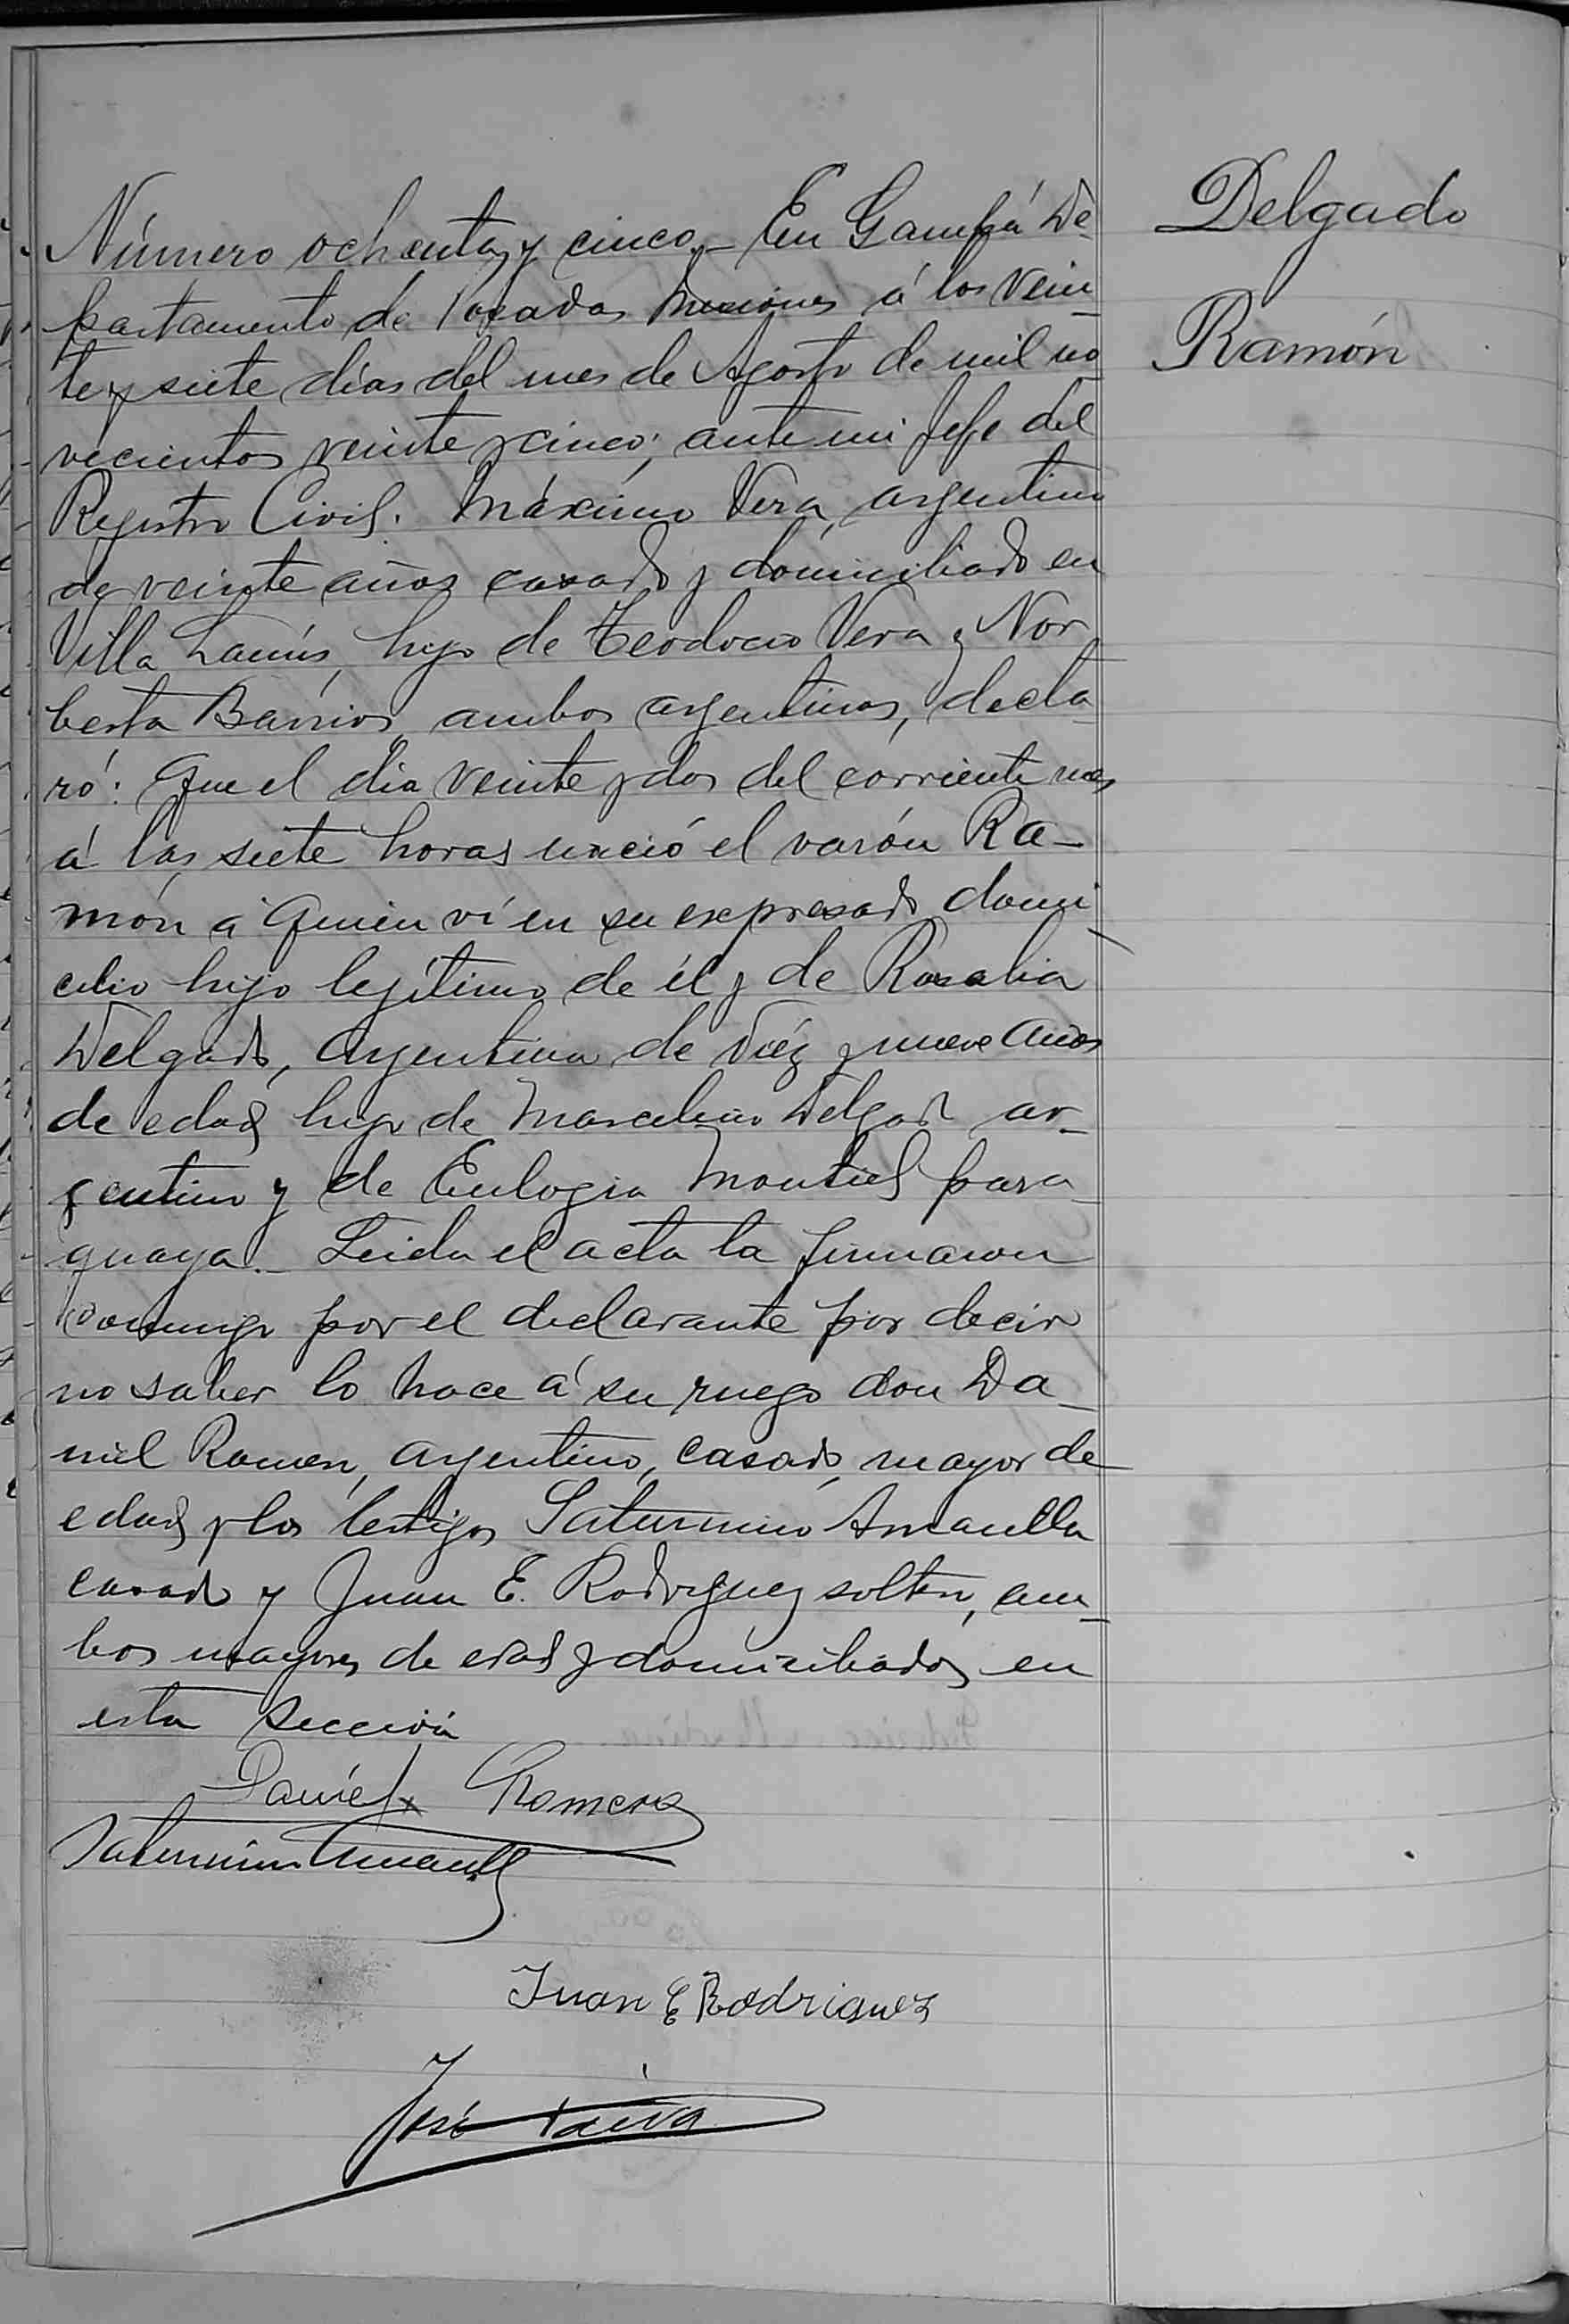 Delgado
Ramón
Número ochenta y cinco.- En Garupá De-
partamento de Posadas Misiones á los vein-
te y siete días del mes de Agosto de mil no-
vecientos veinte y cinco; ante mi Jefe del
Registro Civil. Máximo Vera, argentino
de veinte años casado y domiciliado en
Villa Lanús, hijo de Teodocio Vera y Nor
berta Barrios ambos argentinos, decla-
ró: Que el dia veinte y dos del corriente mes
á las siete horas nació el varón Ra-
món á quien ví en su expresado domi-
cilio hijo legítimo de él y de Rosalia
Delgado, argentina de diéz y nueve años
de edad hija de Marcelino Delgado ar-
gentino y de Eulogia Montiel para-
guaya.- Leida el acta la firmaron
conmigo por el declarante por decir
no saber lo hace á su ruego don Da-
niel Romero, argentino, casado, mayor de
edad y los testigos Saturnino
casado y Juan E. Rodriguez soltero, am-
bos mayores de edad y domiciliados en
esta sección
Daniel Romero
Saturnino
Juan E Rodriguez
José Paiva